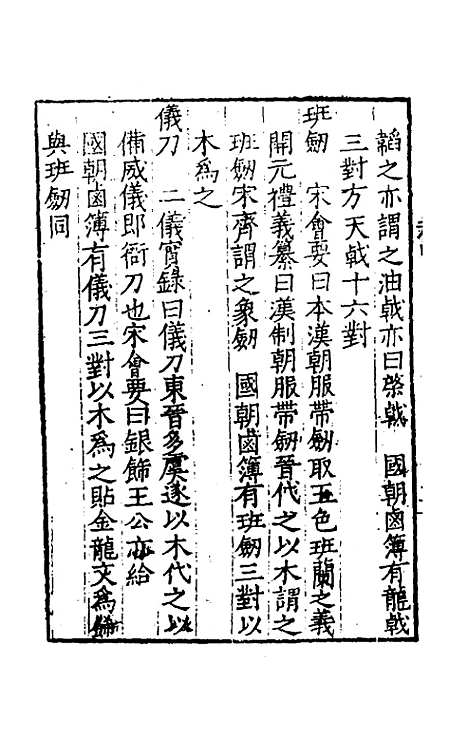 韜之亦謂之油戟亦曰棨戟　國朝鹵簿有龍戟
三對方天戟十六對
班劒　宋會要曰本漢朝服帶劒取五色班蘭之義
開元禮義纂曰漢制朝服帶劒晉代之以木謂之
班劒宋齊謂之象劒　國朝鹵簿有班劒三對以
木為之
儀刀　二儀實錄曰儀刀東晉多虞遂以木代之以
備威儀即衙刀也宋會要曰銀飾王公亦給
國朝鹵簿有儀刀三對以木為之貼金龍文為飾
與班劒同